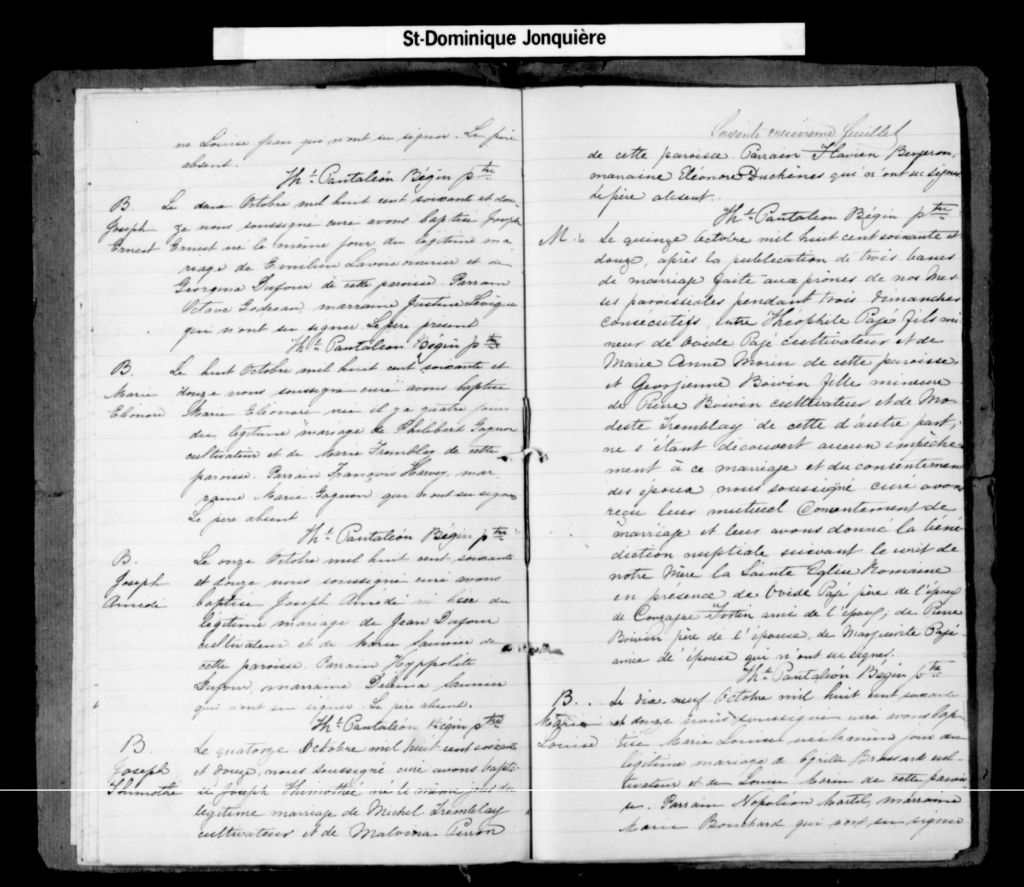 St-Dominique Jonquière
ne Louise Jean qui n'ont su signer. Le père
absent.
Th.t Pantaléon Bégin ptre
B. Le douze Octobre mil huit cent soixante et dou-
Joseph ze nous soussigné curé avons baptisé Joseph
Ernest Ernest né le même jour du légitime ma-
riage de Emilien Lavoie et de
Georgina Dufour de cette paroisse. Parrain
Octave Godreau, marraine Justine Lévèque
qui n'ont su signer. Le père présent
Th.t Pantaléon Bégin ptre
B. Le huit Octobre mil huit cent soixante et
Marie douze nous soussigné curé avons baptisé
Eléonore Marie Eléonore née il y a quatre jours
du légitime mariage de Philibert Gagnon
cultivateur et de Marie Tremblay de cette
paroisse. Parrain François Harvey, mar-
raine Marie Gagnon qui n'ont su signer
Le père absent
Th.t Pantaléon Bégin ptre
B. Le onze Octobre mil huit cent soixante
Joseph et douze nous soussigné curé avons
Amédé baptisé Joseph Amédé né hier du
légitime mariage de Jean Dufour
cultivateur et de Marie Saunier de
cette paroisse. Parrain Hyppolite
Dufour, marraine Délima Saunier
qui n'ont su signer. Le père absent.
Th.t Pantaléon Bégin ptre
B. Le quatorze Octobre mil huit cent soixante
Joseph et douze, nous soussigné curé avons bapti-
Thimothé sé Joseph Thimothée né le même jour du
légitime mariage de Michel Tremblay
cultivateur et de Malvina Piron
Soixante neuvième feuillet
de cette paroisse. Parrain Flavien Bergeron,
marraine Eléonore Duchènes qui n'ont su signer
le père absent.
Th.t Pantaléon Bégin ptre
M. 6 Le quinze Octobre mil huit cent soixante et
douze, après la publication de trois bancs
de mariage faite aux prônes de nos Mes-
ses paroissiales pendant trois dimanches
consécutifs, entre Théophile Pajé fils mi-
neur de Ovide Pajé cultivateur et de
Marie Anne Morin de cette paroisse
et Georgienne Boivin fille mineure
de Pierre Boivin cultivateur et de Mo-
deste Tremblay de cette d'autre part,
ne s'étant découvert aucun empêche-
ment à ce mariage et du consentement
des époux, nous soussigné curé avons
reçu leur mutuel Consentement de
mariage et leur avons donné la béné-
diction nuptiale suivant le writ de
notre Mère la Sainte Eglise Romaine
en présence de Ovide Pajé père de l'époux
de Gonzague Fortin ami de l'époux; de Pierre
Boivin père de l'épouse, de Marguerite Pajé
amie de épouse qui n'ont su signer.
Th.t Pantaléon Bégin ptre
B. Le dix neuf Octobre mil huit cent soixante
Marie et douze nous soussigné curé avons bap-
Louise tisé Marie Louise née le même jour du
légitime mariage de Brassard cul-
tivateur et de Louise Morin de cette parois-
se. Parrain Napoléon Martel, marraine
Marie Bouchard qui n'ont su signer